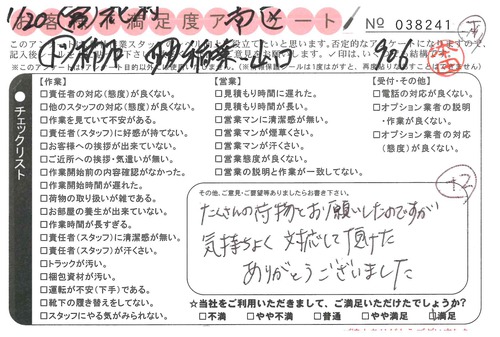 お客様満足度アンケート
No 038241
1/20
906
チェックリスト
【作業】
□責任者の対応(態度)が良くない。
□他のスタッフの対応(態度)が良くない。
□作業を見ていて不安がある。
□責任者(スタッフ)に好感が持てない。
□お客様への挨拶が出来ていない。
□ご近所への挨拶・気遣いが無い。
□作業開始前の内容確認がなかった。
□作業開始時間が遅れた。
□荷物の取り扱いが雑である。
□お部屋の養生が出来ていない。
□作業時間が長すぎる。
□責任者(スタッフ)に清潔感が無い。
□責任者(スタッフ)が汗くさい。
□トラックが汚い。
□梱包資材が汚い。
□運転が不安(下手)である。
□靴下の履き替えをしてない。
□スタッフにやる気がみられない。
【営業】
□見積もり時間に遅れた。
□見積もり時間が長い。
□営業マンに清潔感が無い。
□営業マンが煙草くさい。
□営業マンが汗くさい。
□営業態度が良くない。
□営業の説明と作業が一致してない。
【受付・その他】
□電話の対応が良くない。
□オプション業者の説明
・作業が良くない。
□オプション業者の対応
(態度)が良くない。
その他、ご意見・ご要望等ありましたらお書き下さい。
たくさんの荷物をお願いしたのですが
気持ちよく対応して頂けた
ありがとうございました
☆当社をご利用いただきまして、ご満足いただけたでしょうか?
□不満 □やや不満 □普通 □やや満足 □満足